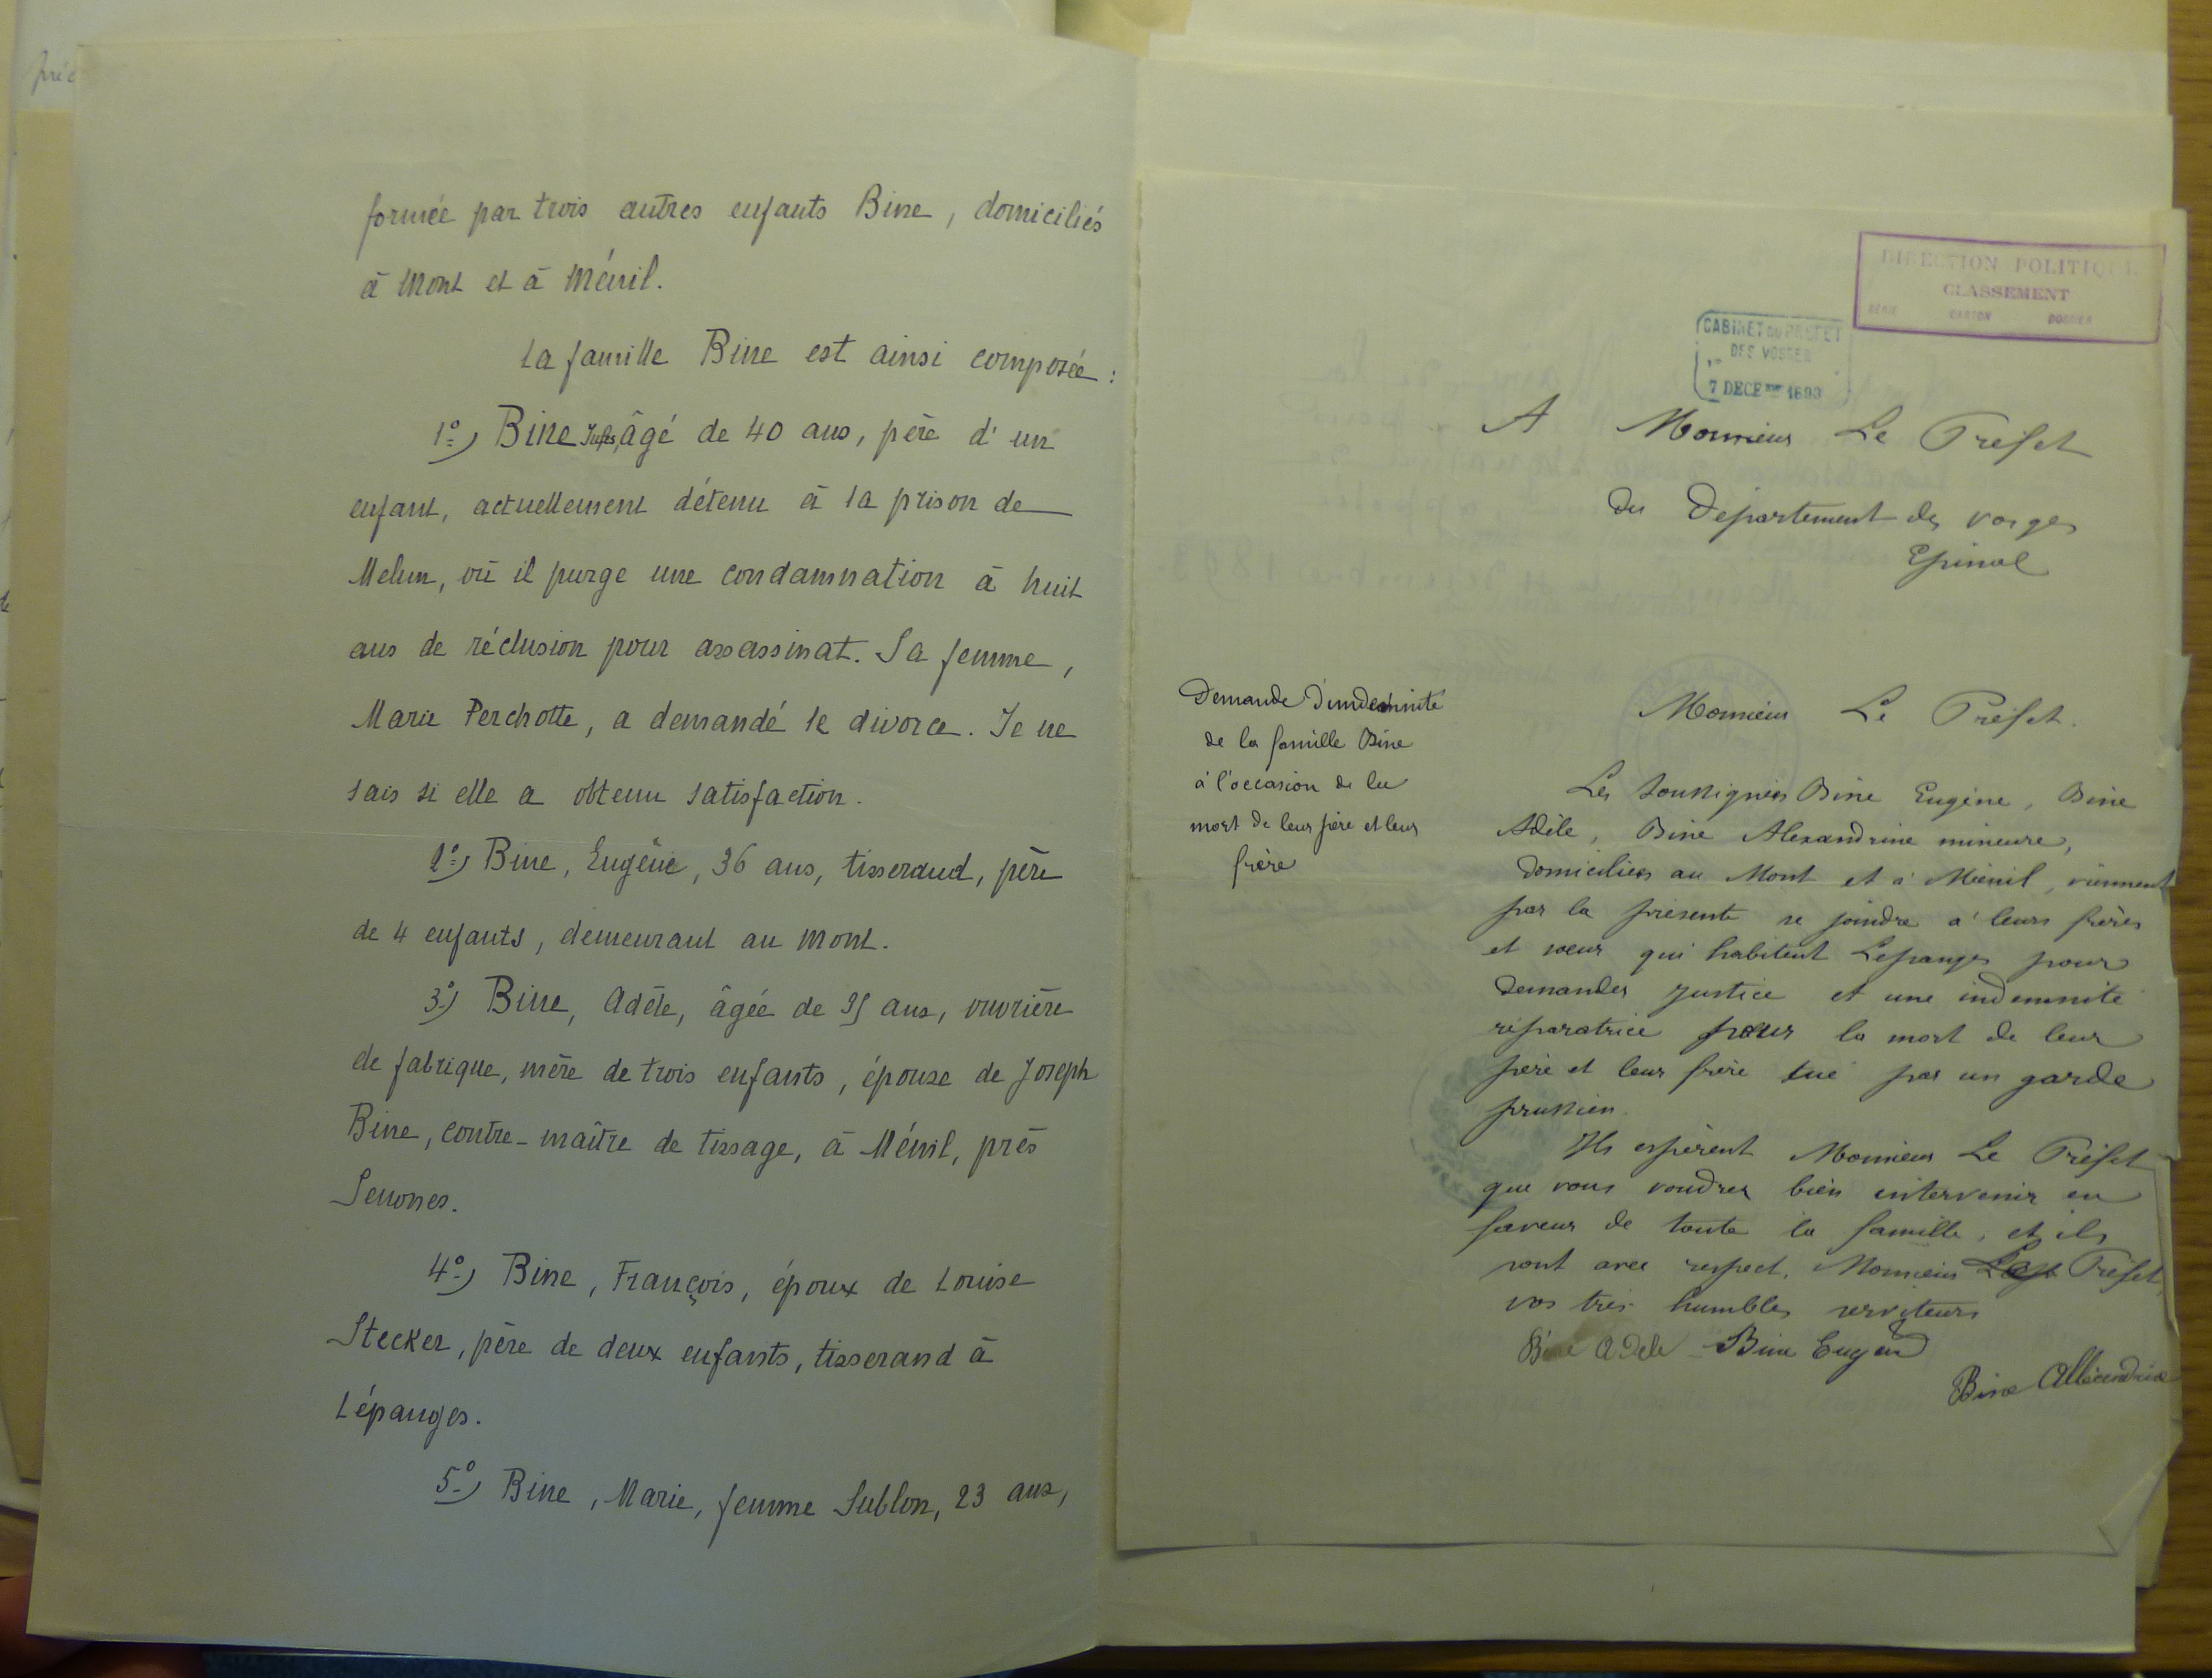 formée par trois autres enfants Bine, domiciliés
à Mont et à Ménil.
La famille Bine est ainsi composée :
1º) Bine Jules, âgé de 40 ans, père d'un
enfant, actuellement détenu à la prison de
Melun, où il purge une condamnation à huit
ans de réclusion pour assassinat. Sa femme,
Marie Perchotte, a demandé le divorce. Je ne
sais si elle a obtenu satisfaction.
2º) Bine, Eugène, 36 ans, tisserand, père
de 4 enfants, demeurant au Mont.
3º) Bine, Adèle, âgée de 35 ans, ouvrière
de fabrique, mère de trois enfants, épouse de Joseph
Bine, contre-maître de tissage, à Ménil, près
Senones.
4º) Bine, François, époux de Louise
Stecker, père de deux enfants, tisserand à
Lépanges.
5º) Bine, Marie, femme Sublon, 23 ans,
DIRECTION POLITIQUE
CLASSEMENT
SÉRIE CARTON DOSSIER
CABINET DU PRÉFET
DES VOSGES
7 DECEMBRE 1893
A Monsieur Le Préfet
du Département des Vosges
Epinal
Demande d'indemnité
de la famille Bine
à l'occasion de la
mort de leur père et leur
frère
Monsieur Le Préfet.
Les soussignés Bine Eugène, Bine
Adèle, Bine Alexandrine mineure,
domiciliés au Mont et à Ménil, viennent
par la présente se joindre à leurs frères
et sœur qui habitent Lépanges pour
demander justice et une indemnité
réparatrice pour la mort de leur
père et leur frère tué par un garde
prussien.
Ils espèrent Monsieur Le Préfet
que vous voudrez bien intervenir en
faveur de toute la famille, et ils
sont avec respect, Monsieur Le Préfet,
vos très humbles serviteurs
Bine Adele Bine Eugen
Bine